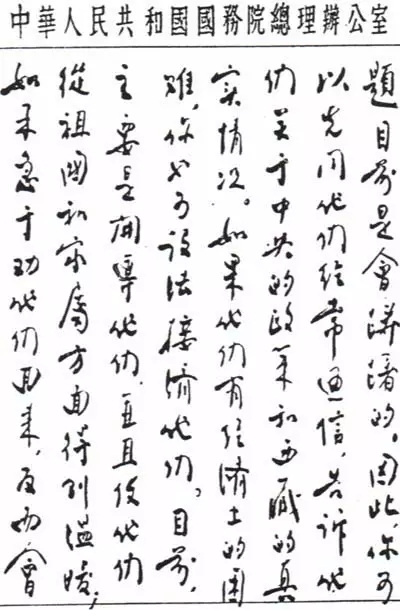 中華人民共和國國務院總理辦公室
題目前是會躊躇的。因此,你可
以先同他们经常通信,告訴他
们关于中共的政策和西藏的真
实情况。如果他们有经濟上的困
难,你也可设法接濟他们。目前,
主要是開導他们,並且使他们
從祖國和家屬方面得到温暖,
如果急于劝他们回来,反而會